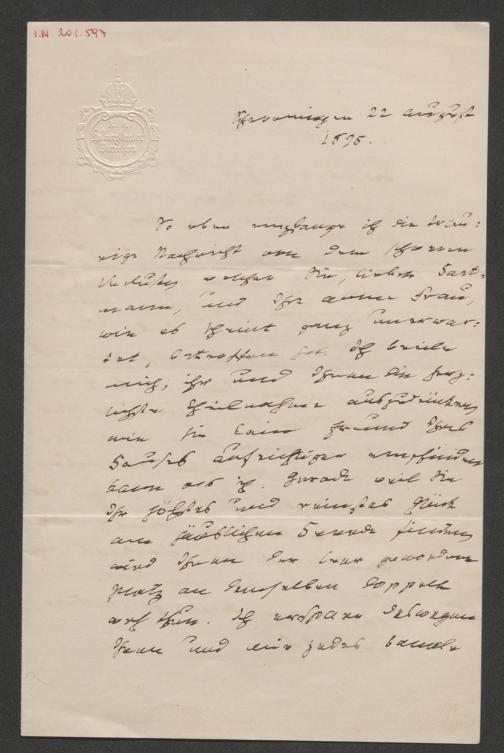 I.N. 201.597
Scheveningen 22 August
1895.
So eben empfange ich die trau-
rige Nachricht von dem schweren
Verluste, welcher Sie, lieber Hart-
mann, und Ihre arme Frau,
wie es scheint ganz unerwar-
tet, betroffen hat. Ich beeile
mich, ihr und Ihnen die herz-
lichste Theilnahme auszudrücken,
wie sie kein Freund Ihres
Hauses aufrichtiger empfinden
kann als ich. Gerade weil Sie
Ihr höchstes und reinstes Glück
am häuslichen Herde finden,
wird Ihnen der leer gewordene
Platz an demselben doppelt
weh thun. Ich erspare deswegen
Ihnen und mir jedes banale